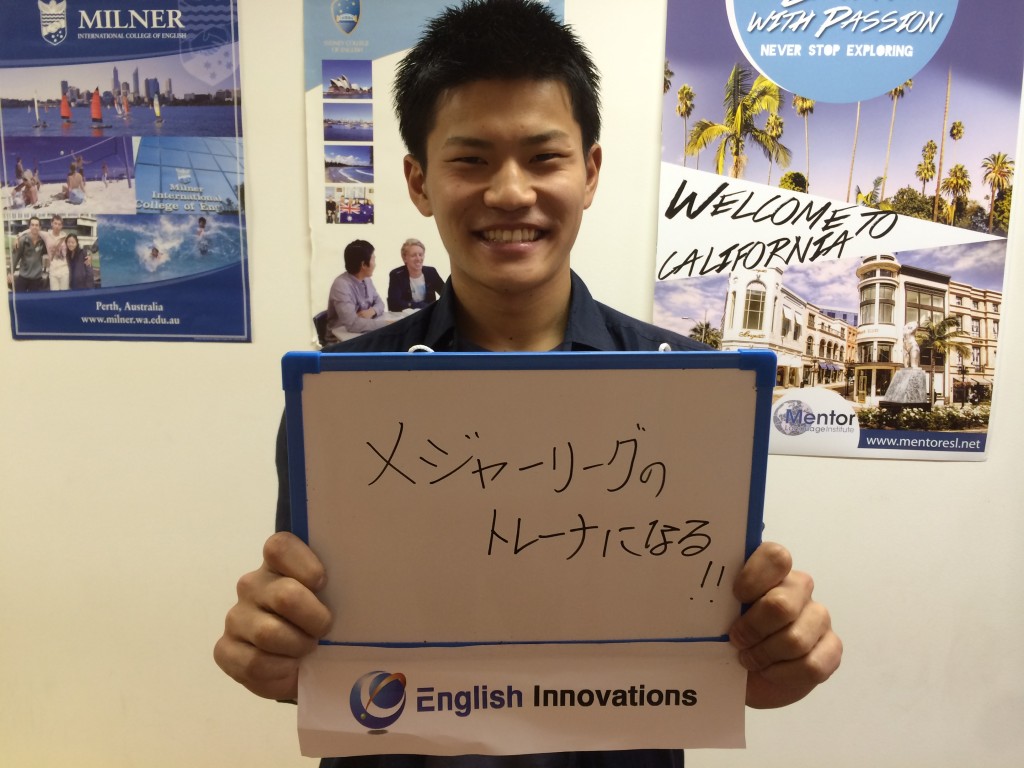 MILNER
INTERNATIONAL COLLEGE OF ENGLISH
Milner
International
College of Eng
Perth, Australia
www.milner.wa.edu.au
SYDNEY COLLEGE
OF ENGLISH
WITH PASSION
NEVER STOP EXPLORING
WELCOME TO
CALIFORNIA
Mentor
Language Institute
www.mentoresl.net
メジャーリーグの
トレーナになる
!!
English Innovations